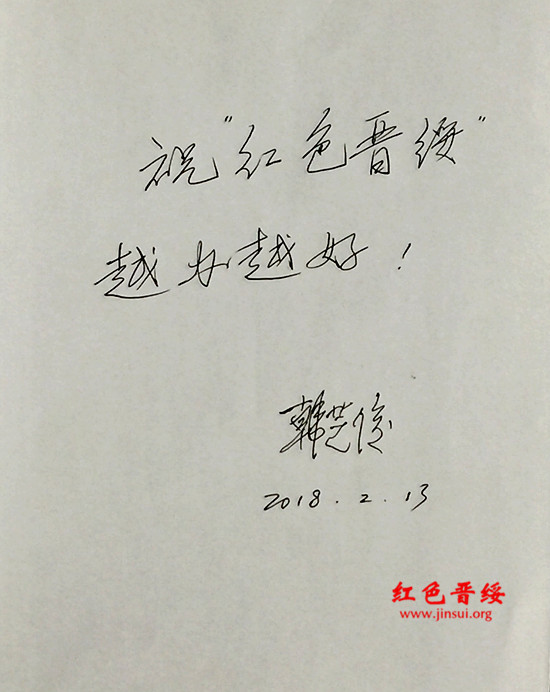 祝"红色晋绥"
越办越好！
韩芝俊
2018.2.13
红色晋绥
www.jinsui.org